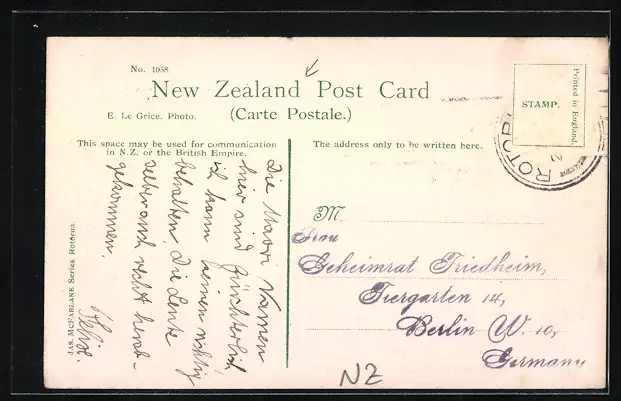 No. 1058
New Zealand Post Card
E. Le Grice, Photo.
(Carte Postale.)
STAMP.
Printed in England.
ROTOR
2
This space may be used for communication
in N.Z. or the British Empire.
The address only to be written here.
Die Maori Namen
hier sind fürchterlich
ich kann keinen richtig
behalten. Die Leute
selber auch recht herab-
gekommen.
JAS. McFARLANE Series Rotorua.
M.
Frau
Geheimrat Friedheim,
Tiergarten 14,
Berlin W. 10,
Germany
NZ